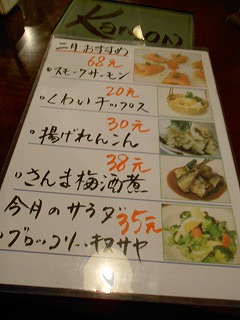 Karson
二月おすすめ
68元
・スモークサーモン
20元
・くわいチップス
30元
・揚げれんこん
38元
・さんま梅酒煮
今月のサラダ 35元
・ブロッコリー・キヌサヤ